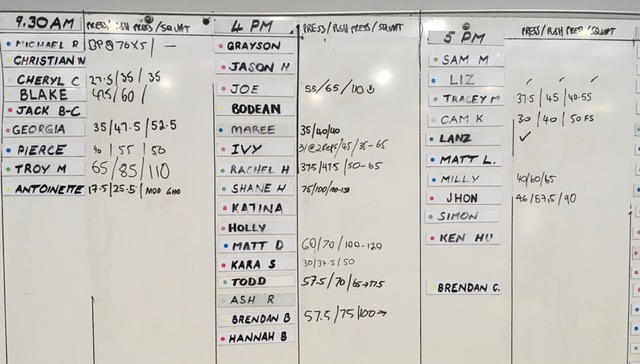 9.30AM PRESS/PUSH PRESS/SQUAT
MICHAEL R BP@70x5/ —
CHRISTIAN W
CHERYL C 27.5/35/35
BLAKE 47.5/60/
JACK B-C
GEORGIA 35/47.5/52.5
PIERCE 40/55/50
TROY M 65/85/110
ANTOINETTE 17.5/25.5/MOD
4 PM PRESS/PUSH PRESS/SQUAT
GRAYSON
JASON H
JOE 55/65/110
BODEAN
MAREE 35/40/40
IVY /45/35-65
RACHEL H 37.5/47.5/50-65
SHANE H 75/100/110-130
KATINA
HOLLY
MATT D 60/70/100-120
KARA S 30/37.5/50
TODD 57.5/70/65→77.5
ASH R
BRENDAN B 57.5/75/100→
HANNAH B
5 PM PRESS/PUSH PRESS/SQUAT
SAM M
LIZ / / /
TRACEY M 37.5/45/40-55
CAM K 30/40/50 FS
LANZ ✓
MATT L.
MILLY 40/60/65
JHON 46/57.5/90
SIMON
KEN HU
BRENDAN C.